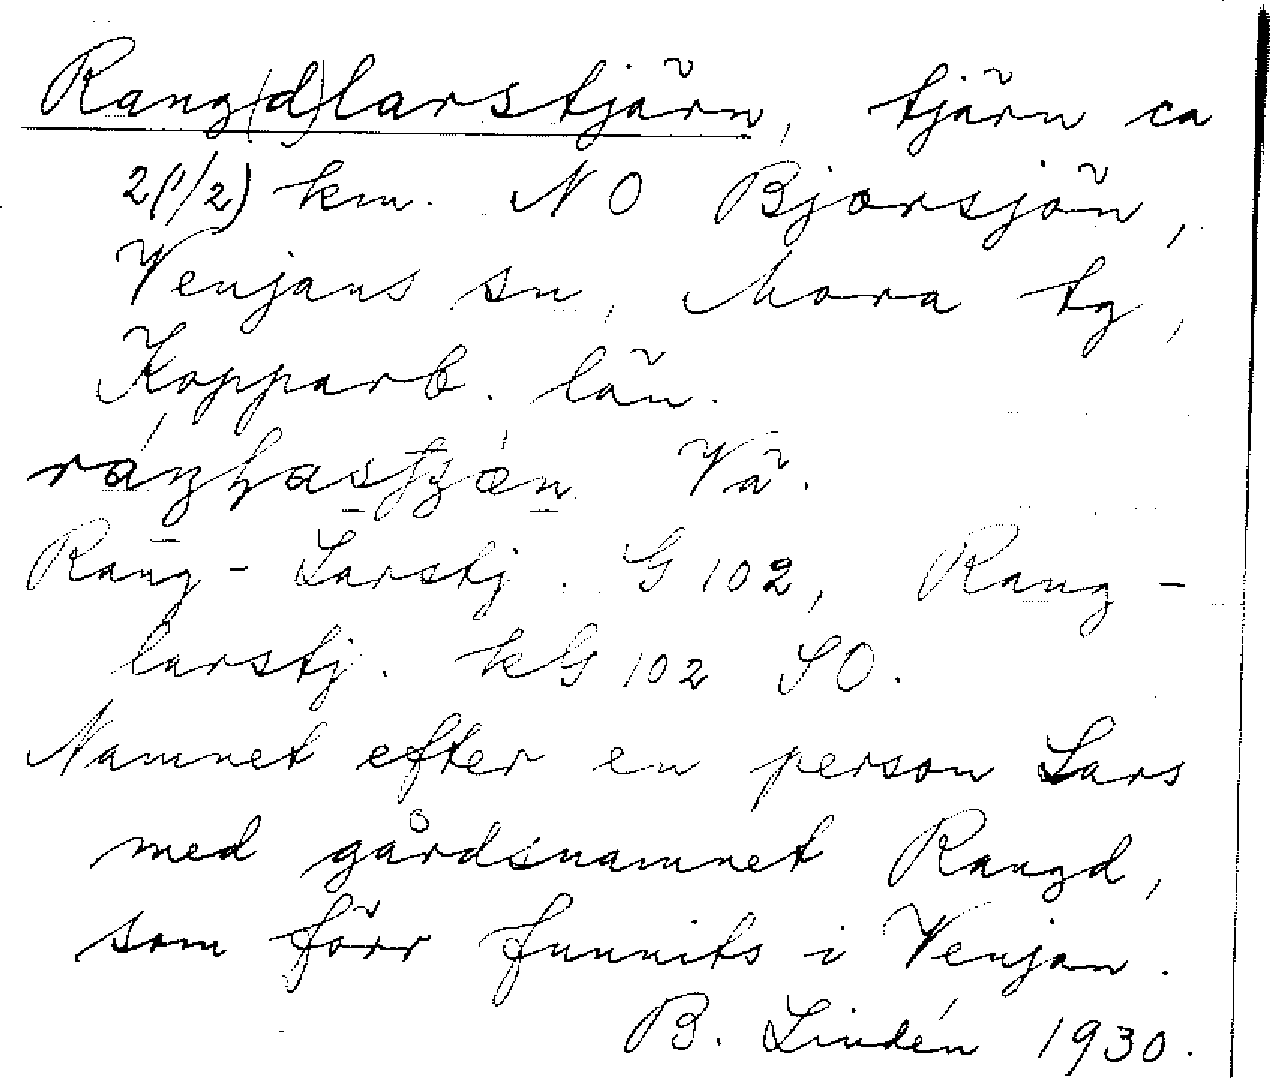 Rang(d)larstjärn, tjärn ca
2(1/2) km. NO Bjorsjön,
Venjans sn, Mora tg,
Kopparb. län.
Vä.
Rang-Larstj. G 102, Rang-
larstj. kG 102 SO.
Namnet efter en person Lars
med gårdsnamnet Rangd,
som förr funnits i Venjan.
B. Lindén 1930.